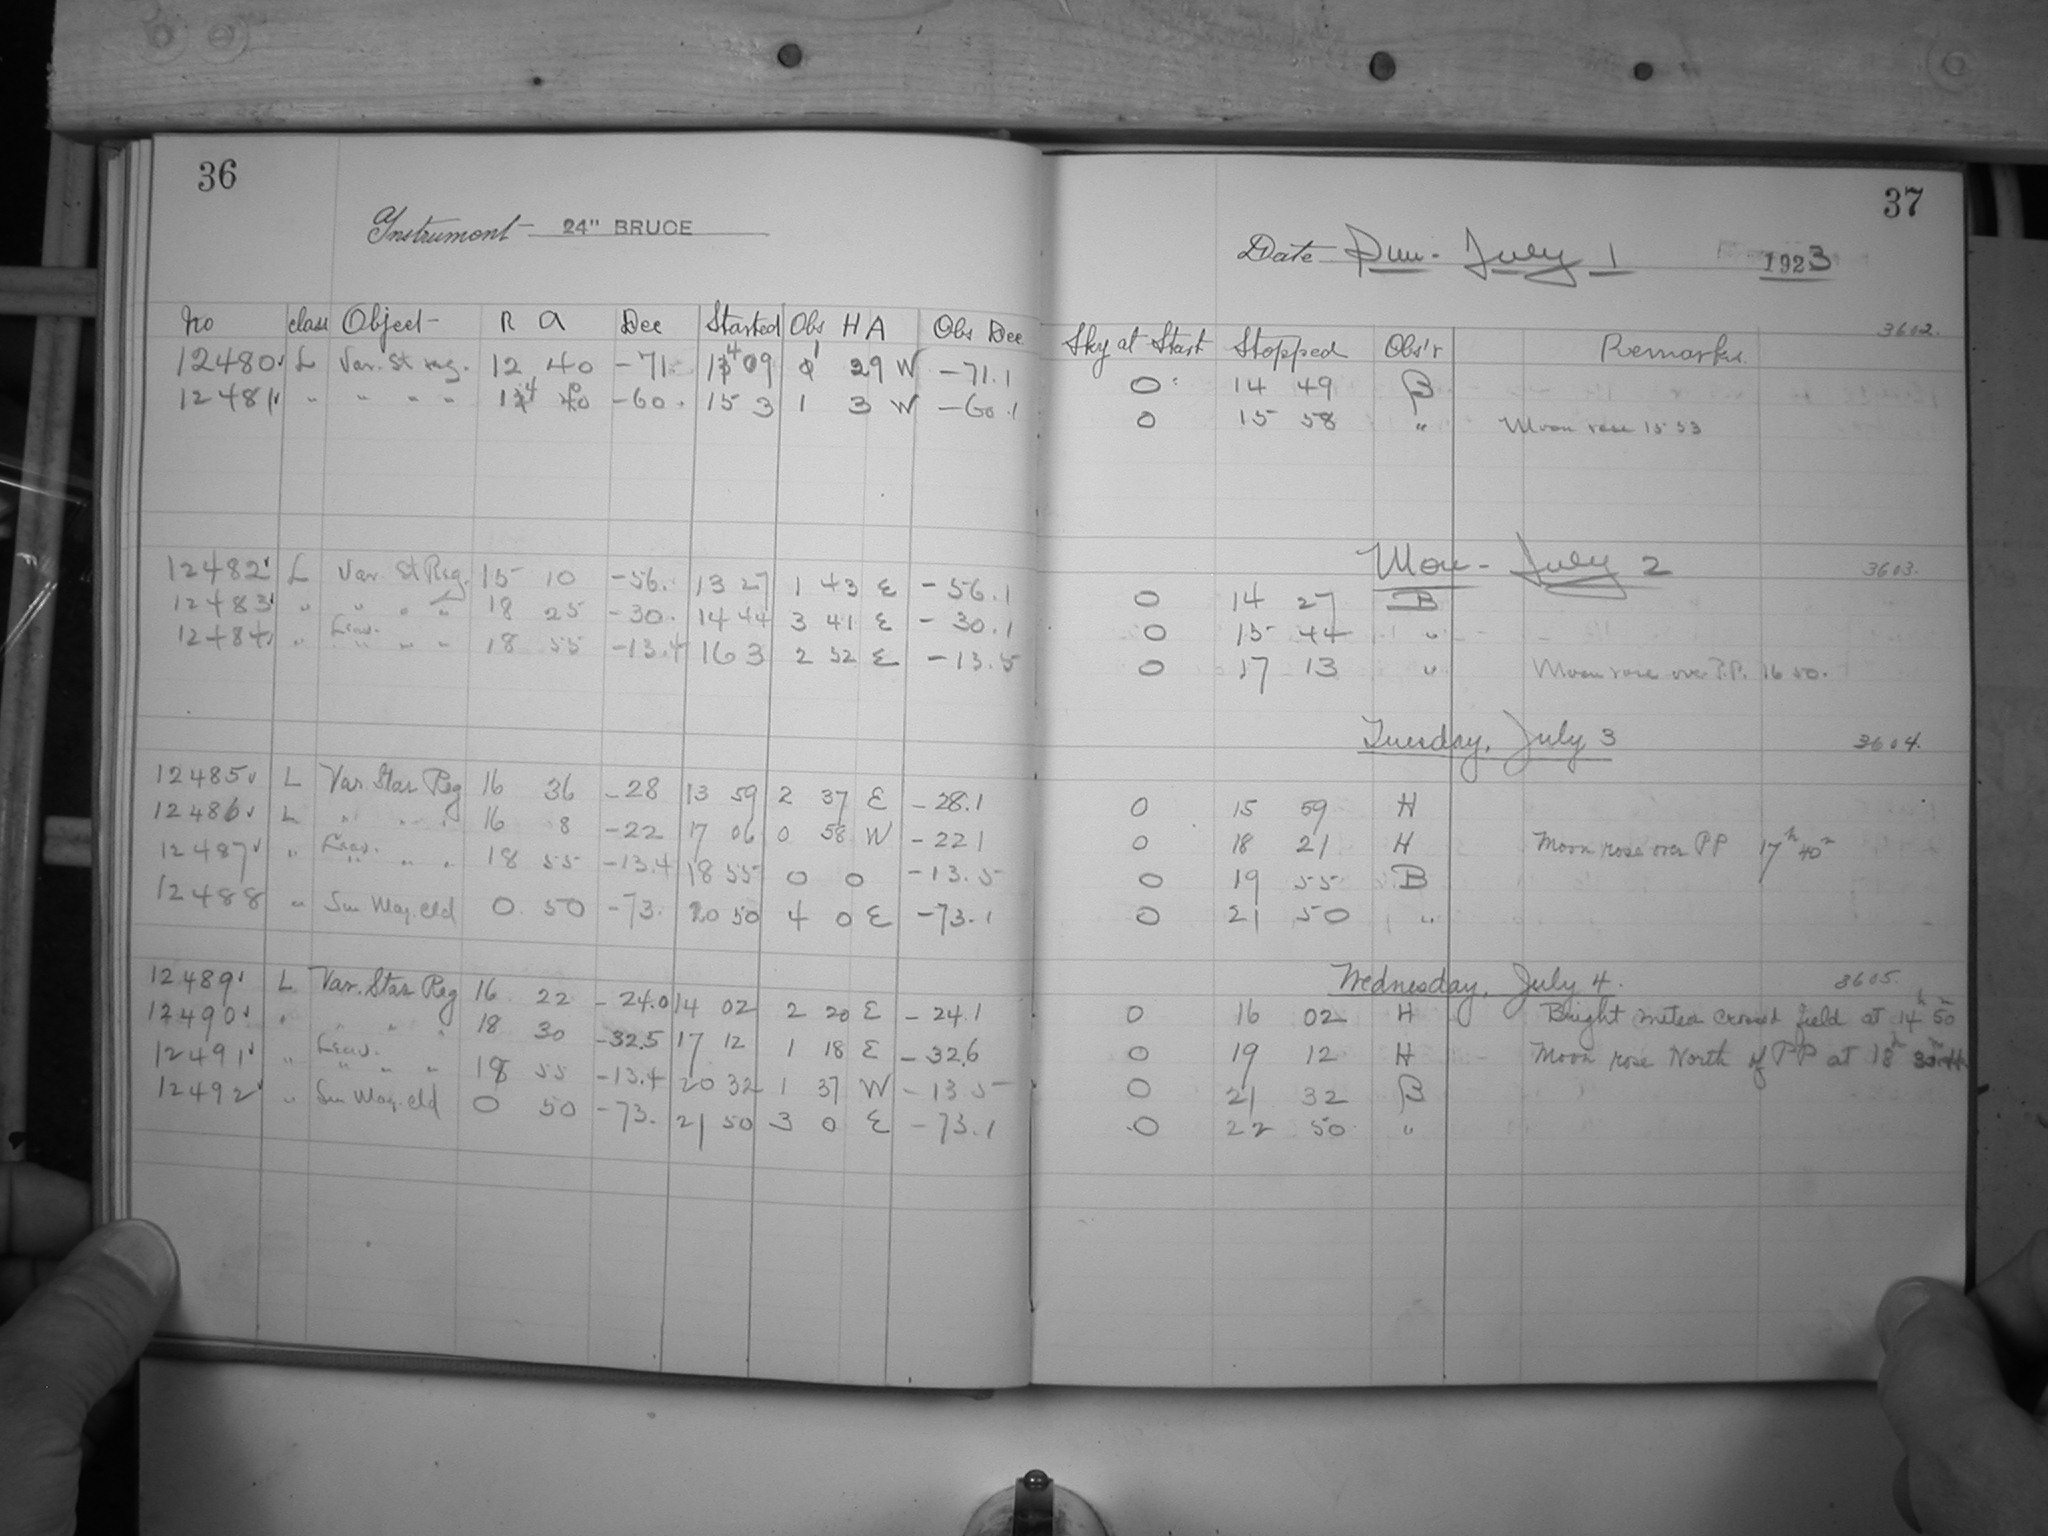 36
Instrument- 24" BRUCE
no class Object- R A Dec Started Obs H A Obs Dec
12480 L Var. St reg. 12 40 -71. 14 09 1 29 W -71.1
12481 " " " " 14 00 -60. 15 3 1 3 W -60.1
12482 L Var. St Reg. 15 10 -56. 13 27 1 43 E -56.1
12483 " " " " 18 25 -30. 14 44 3 41 E -30.1
12484 " " " " 18 55 -13.4 16 3 2 52 E -13.5
12485 L Var. Star Reg 16 36 -28 13 59 2 37 E -28.1
12486 L " " " 16 8 -22 17 06 0 58 W -22.1
12487 " " " " 18 55 -13.4 18 55 0 0 -13.5
12488 " Sm Mag. Cld 0 50 -73. 20 50 4 0 E -73.1
12489 L Var. Star Reg 16 22 -24.0 14 02 2 20 E -24.1
12490 " " " " 18 30 -32.5 17 12 1 18 E -32.6
12491 " " " " 18 55 -13.4 20 32 1 37 W -13.5
12492 " Sm Mag. Cld 0 50 -73. 21 50 3 0 E -73.1
37
Date Sun- July 1 1923
3602.
Sky at Start Stopped Obs'r Remarks.
0 14 49 B
0 15 58 " Moon rose 15 53
Mon- July 2 3603.
0 14 27 B
0 15 44 "
0 17 13 " Moon rose over P.P. 16 50.
Tuesday, July 3 3604.
0 15 59 H
0 18 21 H Moon rose over PP 17h 40m
0 19 55 B
0 21 50 "
Wednesday, July 4. 3605.
0 16 02 H Bright meteor crossed field at 14h 50m
0 19 12 H Moon rose North of PP at 18h
0 21 32 B
0 22 50 "